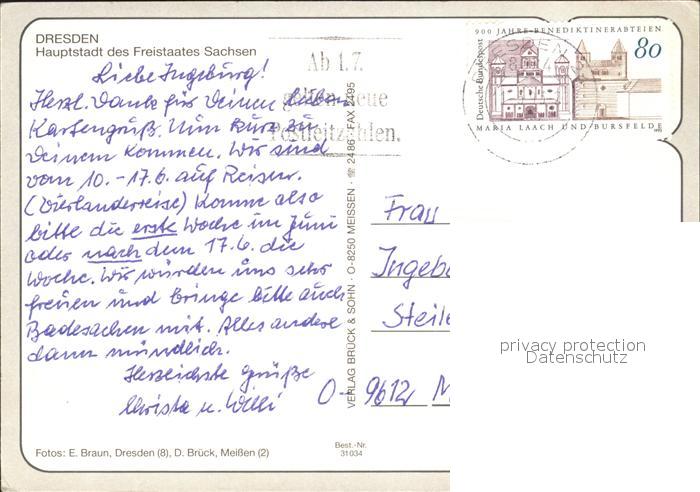 DRESDEN
Hauptstadt des Freistaates Sachsen
Liebe Ingeburg!
Herzl. Dank für Deinen lieben
Kartengruß. Nun kurz zu
Deinem Kommen. Wir sind
vom 10.-17.6. auf Reisen.
(Vierländerreise) Komme also
bitte die erste Woche im Juni
oder nach dem 17.6. die
Woche. Wir würden uns sehr
freuen und bringe bitte auch
Badesachen mit. Alles andere
dann mündlich.
Herzlichste Grüße
Christa u. Willi
Fotos: E. Braun, Dresden (8), D. Brück, Meißen (2)
Best.-Nr.
31034
VERLAG BRÜCK & SOHN · O-8250 MEISSEN · ☎ 2486 · FAX 2495
Ab 1.7.
gelten neue
Postleitzahlen.
DRESDEN
900 JAHRE·BENEDIKTINERABTEIEN
Deutsche Bundespost
80
MARIA LAACH UND BURSFELDE
1993
Frau
Ingeb
Steile
O-9612 M
privacy protection
Datenschutz